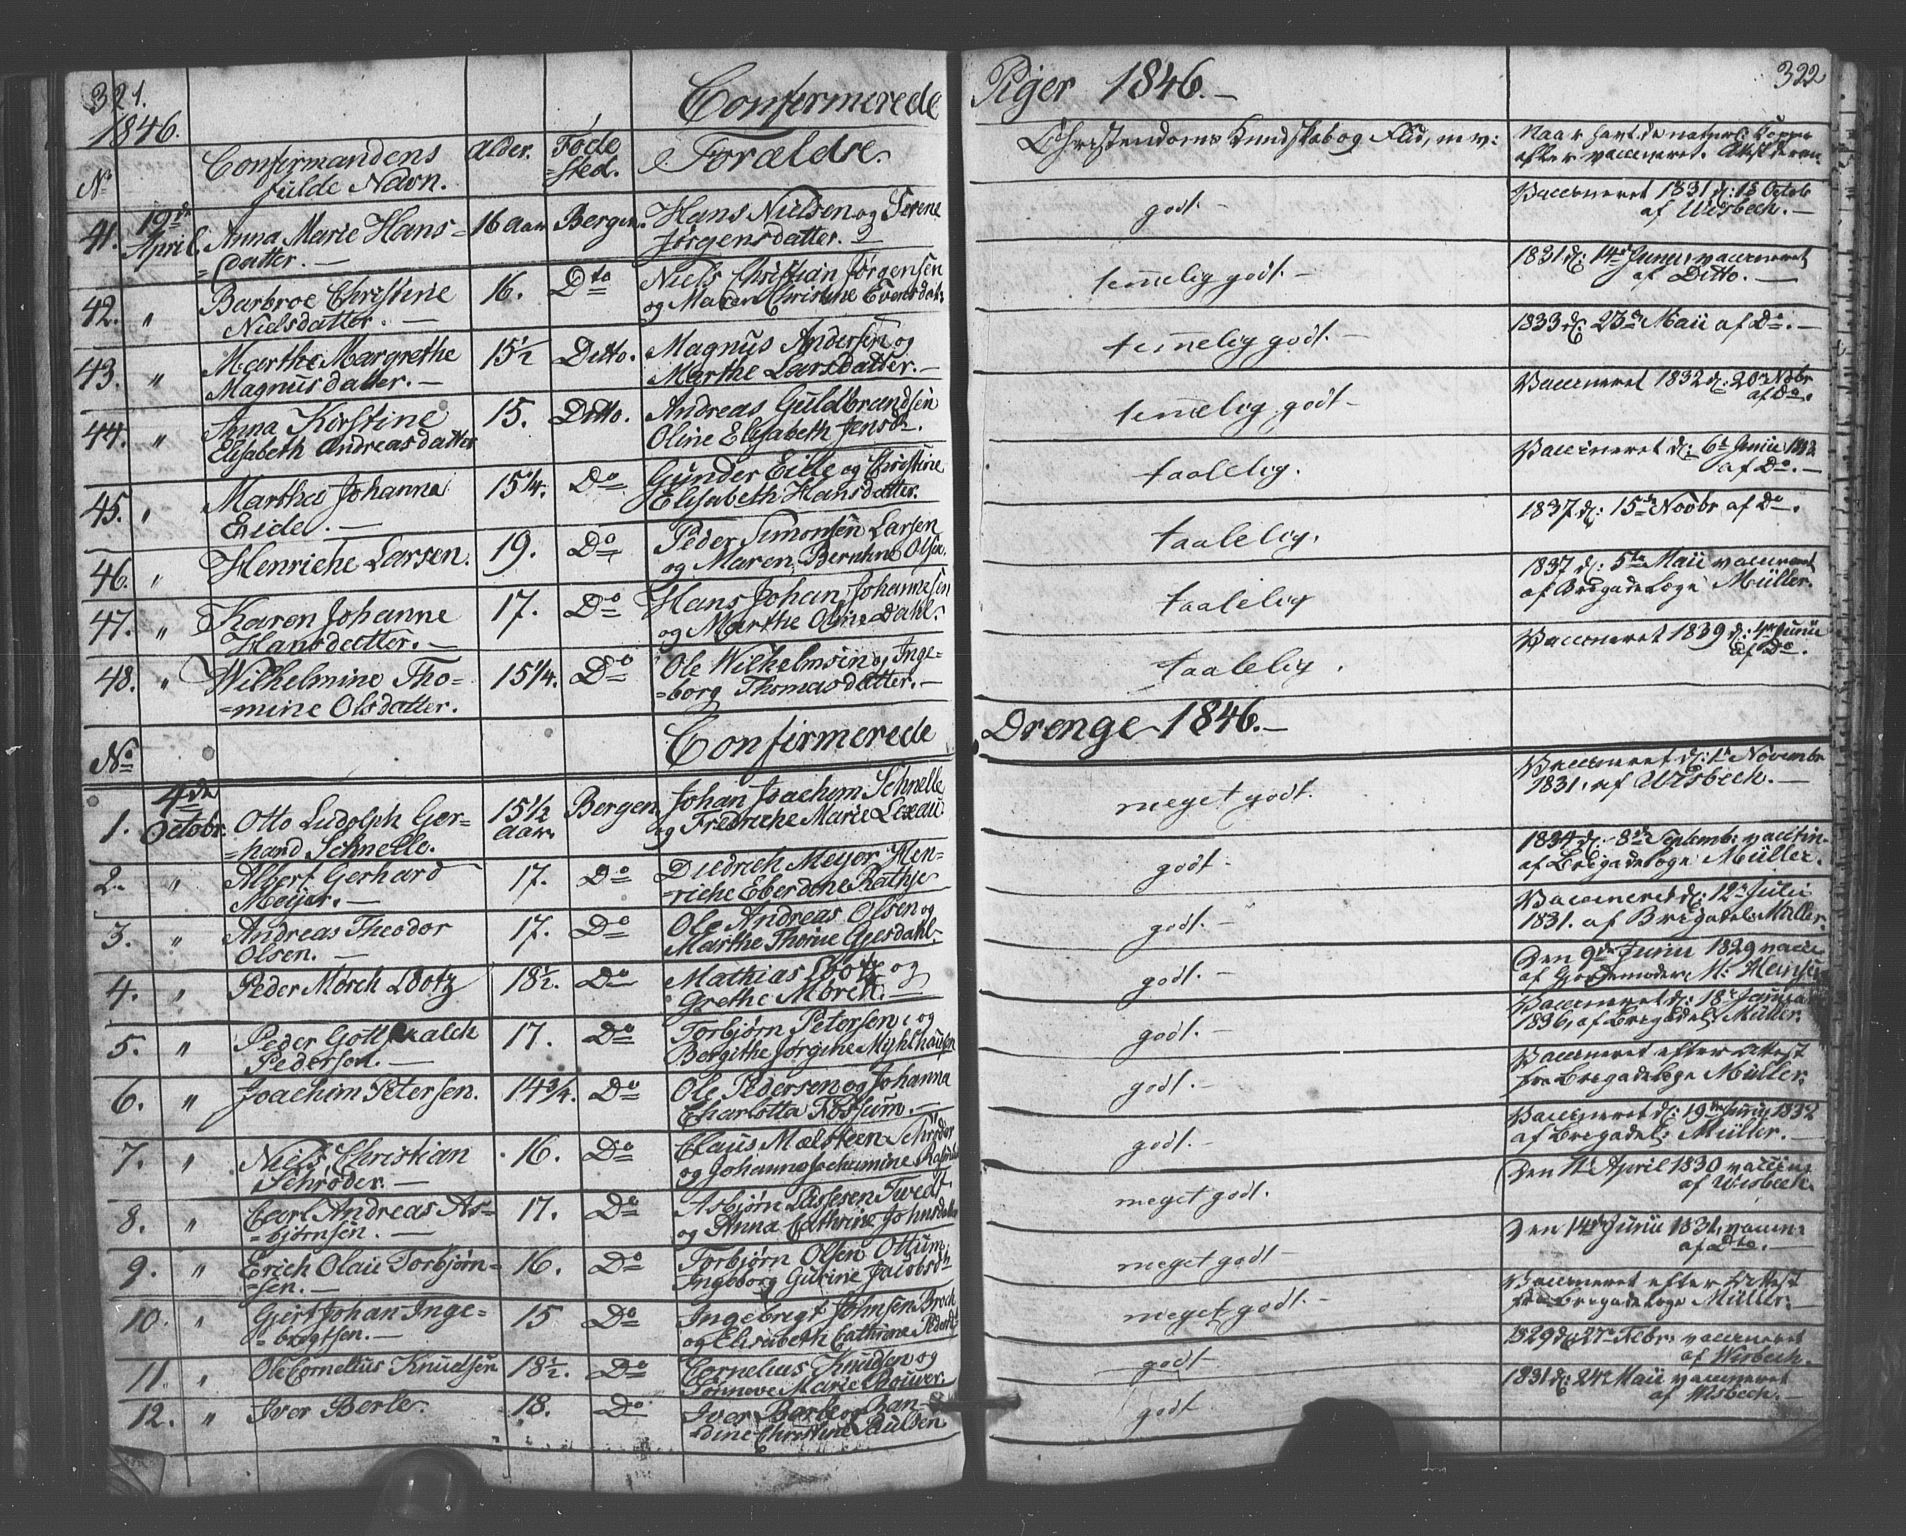 321.
1846.
Confirmerede
Piger 1846.—
322
No
Confirmandens
fulde Navn.
Alder.
Føde
=sted.
Forældre.
Christendoms Kundskab og Flid, m. v:
41.
19de
April
Anna Marie Hans=
=datter.—
16 Aar
Bergen.
Hans Nielsen og Serene
Jørgensdatter.
godt.—
Vaccineret 1831 d:
af Wisbech.—
42.
"
Barbroe Christine
Nielsdatter.—
16.
Dto
Niels Christian Jørgensen
og Maren Christine
temelig godt.—
1831 d: 14de Junii vaccineret
af Ditto.—
43.
"
Marthe Margrethe
Magnusdatter.—
15½
Ditto.
Magnus Andersen og
Marthe Larsdatter.—
temelig godt.—
1833 d: 23de Maii af Do.—
44.
"
Anna Kirstine
Elisabeth Andreasdatter
15.
Ditto.
Andreas Guldbrandsen
Oline Elisabeth Jensd.
temelig godt—
Vaccineret 1832 d: 20de Nobr
af Do.
45.
"
Martha Johanna
Eide.—
15¼.
Do
Gunder Eide og Christine
Elisabeth Hansdatter.
taalelig.
Vaccineret d: 6te Junii
af Do.—
46.
"
Henriche Larsen.
19.
Do
Peder Simonsen Larsen
og Maren Bernhne Olsen.
taalelig.
1837 d: 15de Novbr af Do.
47.
"
Karen Johanne
Hansdatter.—
17.
Do
Hans Johan Johannesen
og Marthe Oline Dahl.
taalelig
1837 d: 5te Maii vaccineret
af Brigadelæge Müller.
48.
"
Wilhelmine Tho=
=mine Olsdatter.
15¼.
Do
Ole Wilhelmsen og Inge=
=borg Thomasdatter.—
taalelig.
Vaccineret 1839 d: Junii
af Do.
No
Confirmerede
Drenge 1846.—
1.
4de
Octobr.
Otto Ludolph Ger=
=hard Schnelle.
15½
Aar.
Bergen
Johan Joachim Schnelle
og Fredriche Marie Lexau
meget godt.
Vaccineret d: 1te Novembr
1831. af Wisbech.—
2.
"
Albert Gerhard
Meijer.—
17.
Do
Diedrich Meyer Hen=
=riche Eberdine Rathje
godt—
1834 d: 8de Septembr vaccin=
af Brigadelæge Müller.
3.
"
Andreas Theodor
Olsen.—
17.
Do
Ole Andreas Olsen og
Marthe Thorine Gjesdahl.
godt.—
Vaccineret d: 12te Julii
1831. af Brigadel: Müller.
4.
"
Peder Mörch Lootz
18½.
Do
Mathias Lootz og
Grethe Mörch.—
godt.—
Den 9de Junii 1829 vacci=
af Gjordemoder M:
5.
"
Peder Gottschalch
Pedersen.—
17.
Do
Torbjørn Petersen og
Bergithe Jørgine Myhlhausen
godt.—
Vaccineret d: 18de
1836, af Brigadel: Müller.
6.
"
Joachim Petersen.
14¾.
Do
Ole Pedersen og Johanna
Charlotta Fossum.—
godt.—
Vaccineret efter Attest
fra Brigadelæge Müller.
7.
"
Niels Christian
Schröder.—
16.
Do
Claus Mæltsen Schröder
og Johanna Jochumine
godt.—
Vaccineret d: 19de Junii 1832
af Brigadel: Müller.—
8.
"
Carl Andreas As=
=bjørnsen.—
17.
Do
Asbjørn Lassesen Twedt
og Anna Cathrine Johnsdatter
meget godt.
Den April 1830 vaccin:
af Wisbech.
9.
"
Erich Olai Torbjørn=
=sen.—
16.
Do
Torbjørn Olsen Ottum
Ingeborg Gurine Jacobsd
meget godt
Den 14de Junii 1831. vaccin=
af Dto.—
10.
"
Gjert Johan Inge=
=brigtsen.—
15
Do
Ingebrigt Johnsen Broch
og Elisabeth Cathrine
meget godt.—
Vaccineret efter Attest
fra Brigadelæge Müller.
11.
"
Ole Cornelius Knudsen
18½.
Do
Cornelius Knudsen og
Sønneve Marie Bouwer.
godt—
1829 d: 27de Febr. vaccineret
af Wisbech.
12.
"
Iver Berle.
18.
Do
Iver Berle og Han=
=dine Christine Paulsen
godt
1831 d: 24de Maii vaccineret
af Wisbech.—